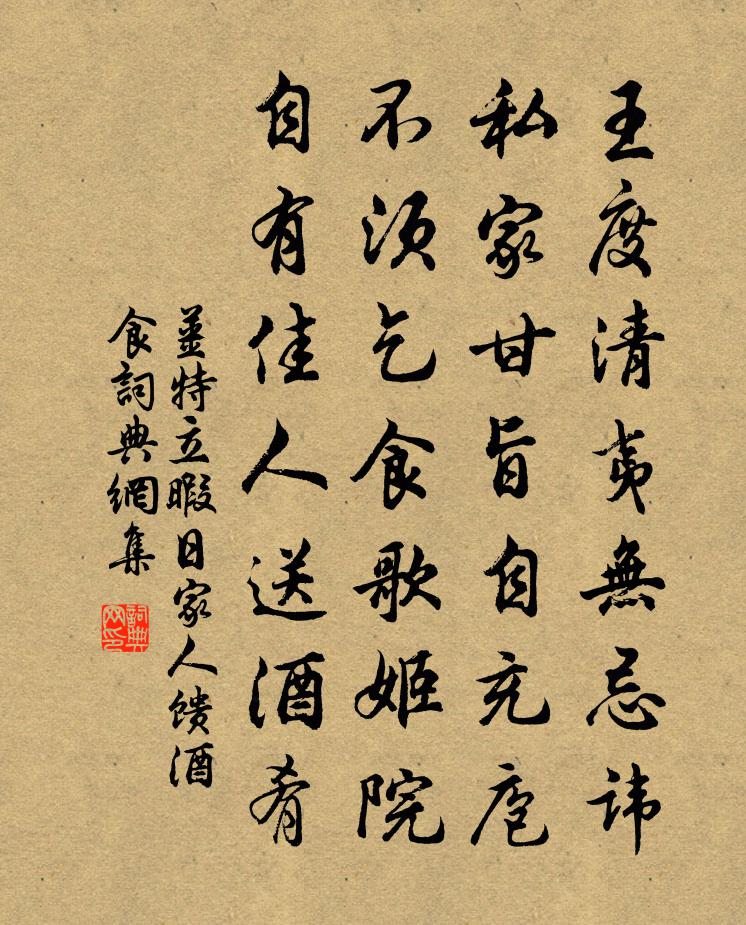 王度清夷無忌諱
私家甘旨自充庖
不須乞食歌姬院
自有佳人送酒肴
薑特立暇日家人馈酒
食詞典網集
詞典
网印